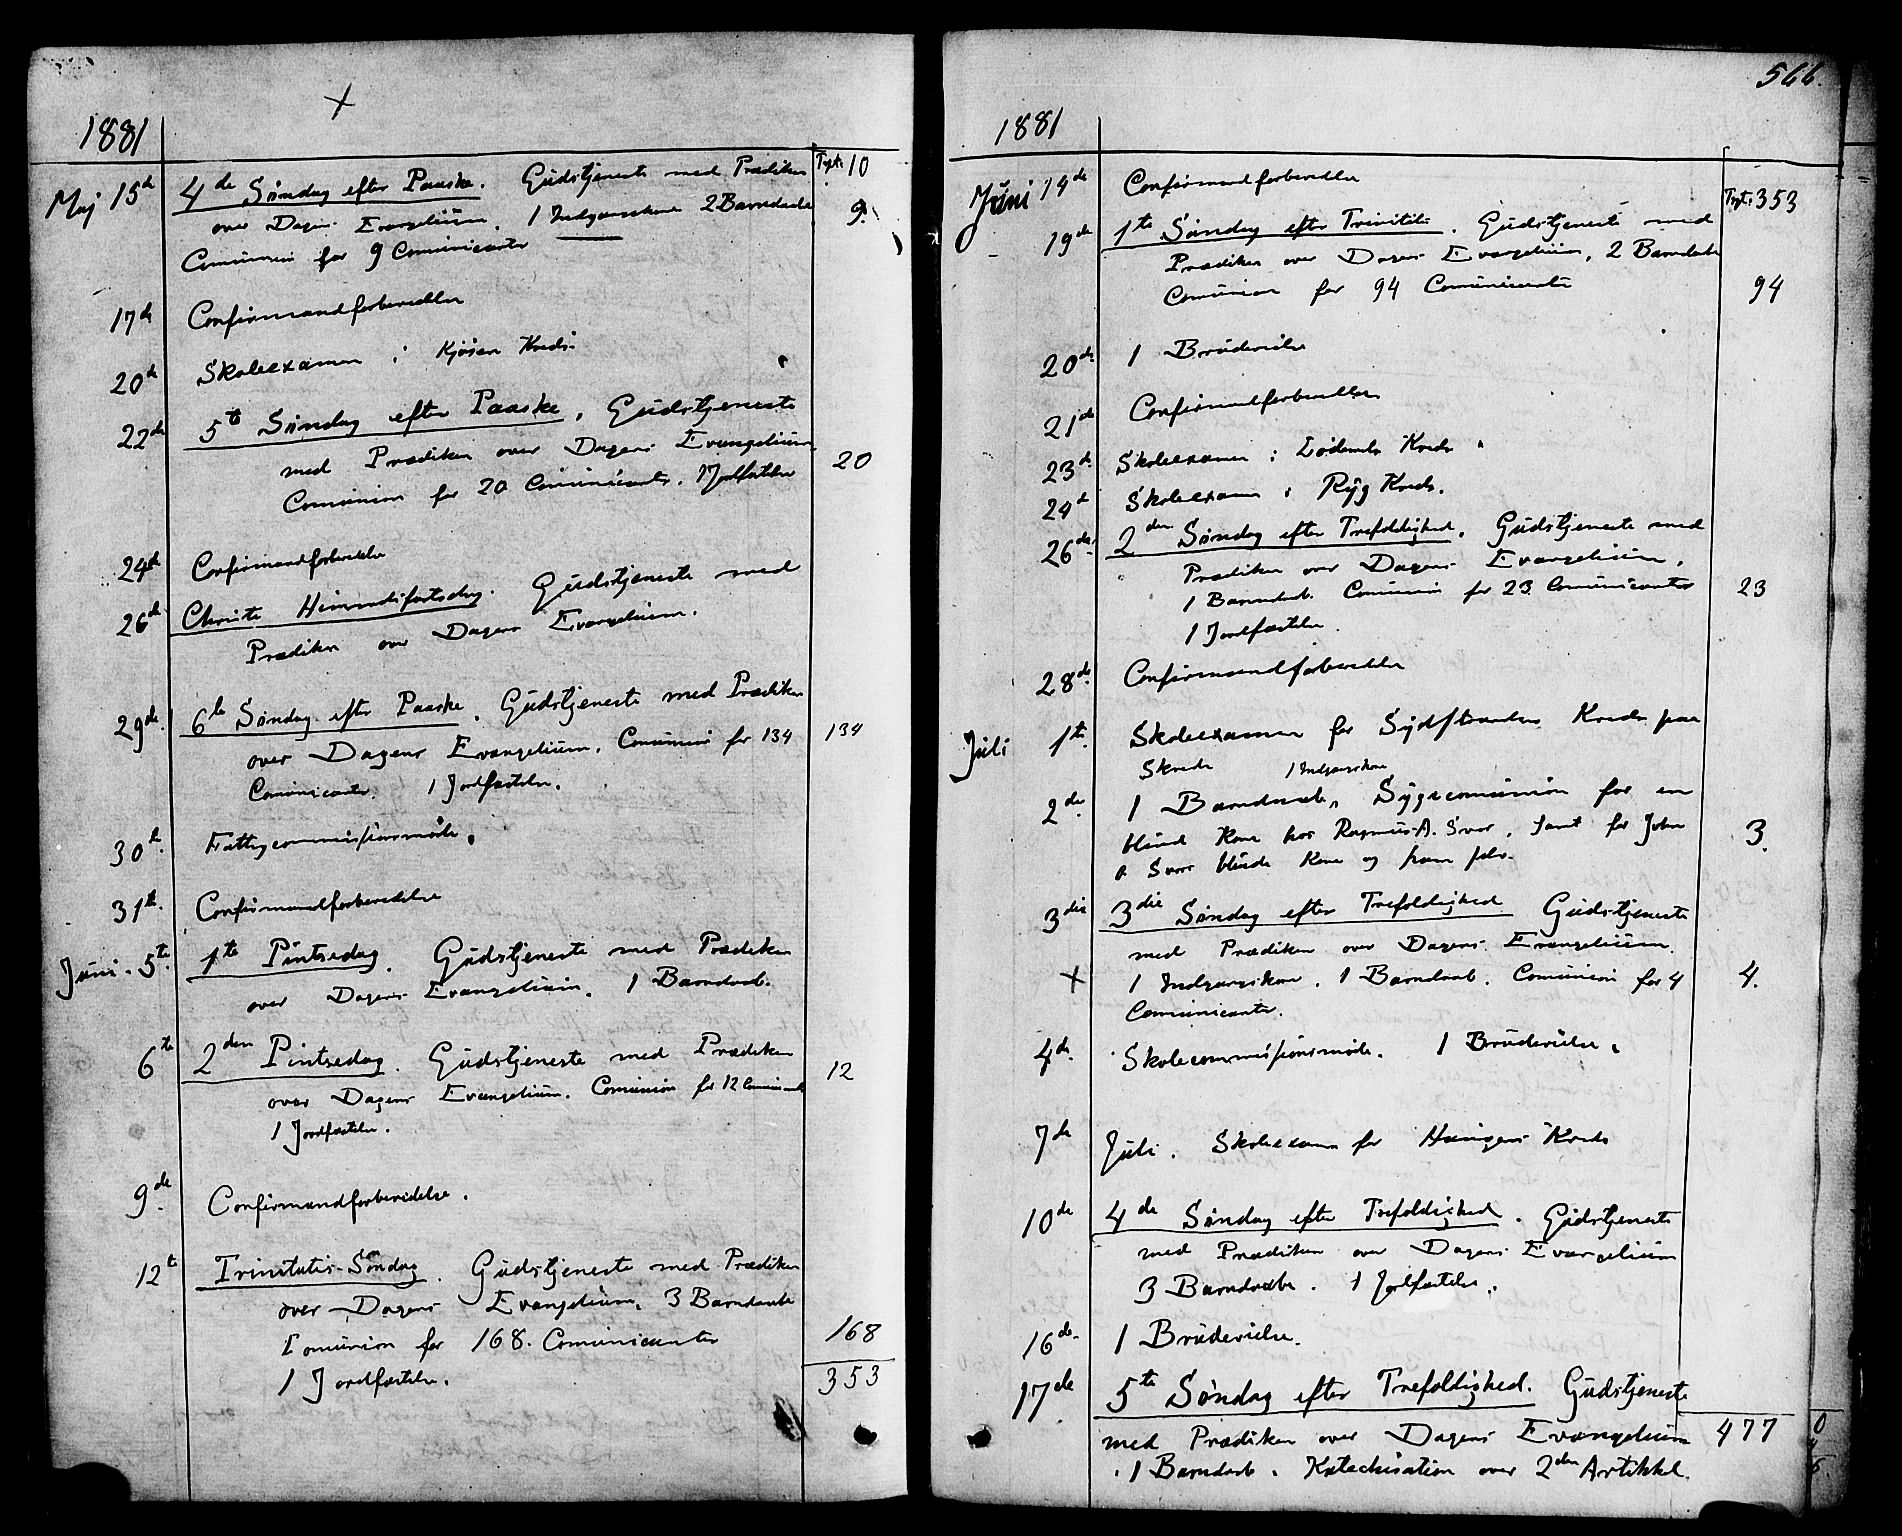 1881
Tpt. 10
Maj 15de 4de Søndag efter Paaske. Gudstjeneste med Prædiken
over Dagens Evangelium. 1 Indgangskone 2 Barndaabe 9.
Comunion for 9 Comunicanter
17de Confirmandforberedelse
20de Skoleexamen i Kjøsen Kreds.
22de 5te Søndag efter Paaske. Gudstjeneste
med Prædiken over Dagens Evangelium
Comunion for 20 Comunicanter. 1 Jordfæstelse 20
24de Confirmandforberedelse
26de Christi Himmelsfartsdag. Gudstjeneste med
Prædiken over Dagens Evangelium.
29de 6te Søndag efter Paaske. Gudstjeneste med Prædiken
over Dagens Evangelium. Comunion for 134 134
Comunicanter. 1 Jordfæstelse.
30te Fattigcommissionsmøde.
31te Confirmandforberedelse
Juni 5te 1te Pintsedag. Gudstjeneste med Prædiken
over Dagens Evangelium. 1 Barndaab.
6te 2den Pintsedag. Gudstjeneste med Prædiken
over Dagens Evangelium. Comunion for 12 Comunicanter 12
1 Jordfæstelse.
9de Confirmandforberedelse.
12te Trinitatis-Søndag. Gudstjeneste med Prædiken
over Dagens Evangelium. 3 Barndaabe
Comunion for 168 Comunicanter 168
1 Jordfæstelse. 353
566.
1881
Juni 14de Confirmandforberedelse
Tpt. 353
19de 1te Søndag efter Trinitatis. Gudstjeneste med
Prædiken over Dagens Evangelium, 2 Barndaabe
Comunion for 94 Comunicanter 94
20de 1 Brudevielse
21de Confirmandforberedelse
23de Skoleexamen i Kreds.
24de Skoleexamen i Ryg Kreds.
26de 2den Søndag efter Trefoldighed. Gudstjeneste med
Prædiken over Dagens Evangelium.
1 Barndaab. Comunion for 23 Comunicanter 23
1 Jordfæstelse.
28de Confirmandforberedelse
Juli 1te Skoleexamen for Sydstrandens Kreds paa
Skrede 1 Indgangskone
2de 1 Barndaab, Sygecomunion for en
blind Kone hos Rasmus A. Svor, samt for John
A Svors blinde Kone og ham selv. 3.
3die 3die Søndag efter Trefoldighed Gudstjeneste
med Prædiken over Dagens Evangelium.
1 Indgangskone. 1 Barndaab. Comunion for 4 4.
Comunicanter.
4de Skolecommissionsmøde. 1 Brudevielse.
7de Juli. Skoleexamen for Haugens Kreds
10de 4de Søndag efter Trefoldighed. Gudstjeneste
med Prædiken over Dagens Evangelium
3 Barndaabe. 1 Jordfæstelse.
16de 1 Brudevielse.
17de 5te Søndag efter Trefoldighed. Gudstjeneste
med Prædiken over Dagens Evangelium 477
1 Barndaab. Katechisation over 2den Artikkel.